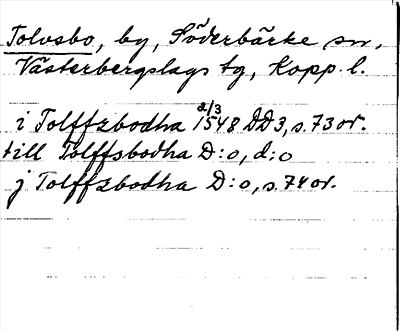 Tolvsbo, by, Söderbärke sn,
Västerbergslags tg, Kopp. l.
i Tolffzbodha 2/3 1548 DD3, s. 73 or.
till Tolffsbodha D:o, d:o
j Tolffzbodha D:o, s. 74 or.